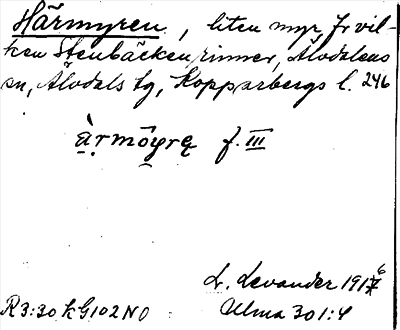 Härmyren, liten myr, fr vil-
ken Stenbäcken rinner, Älvdalens
sn, Älvdals tg, Kopparbergs l. 246
àrmöyrę f. III
L. Levander 1916
R3:30 k G102 NO Ulma 301:4